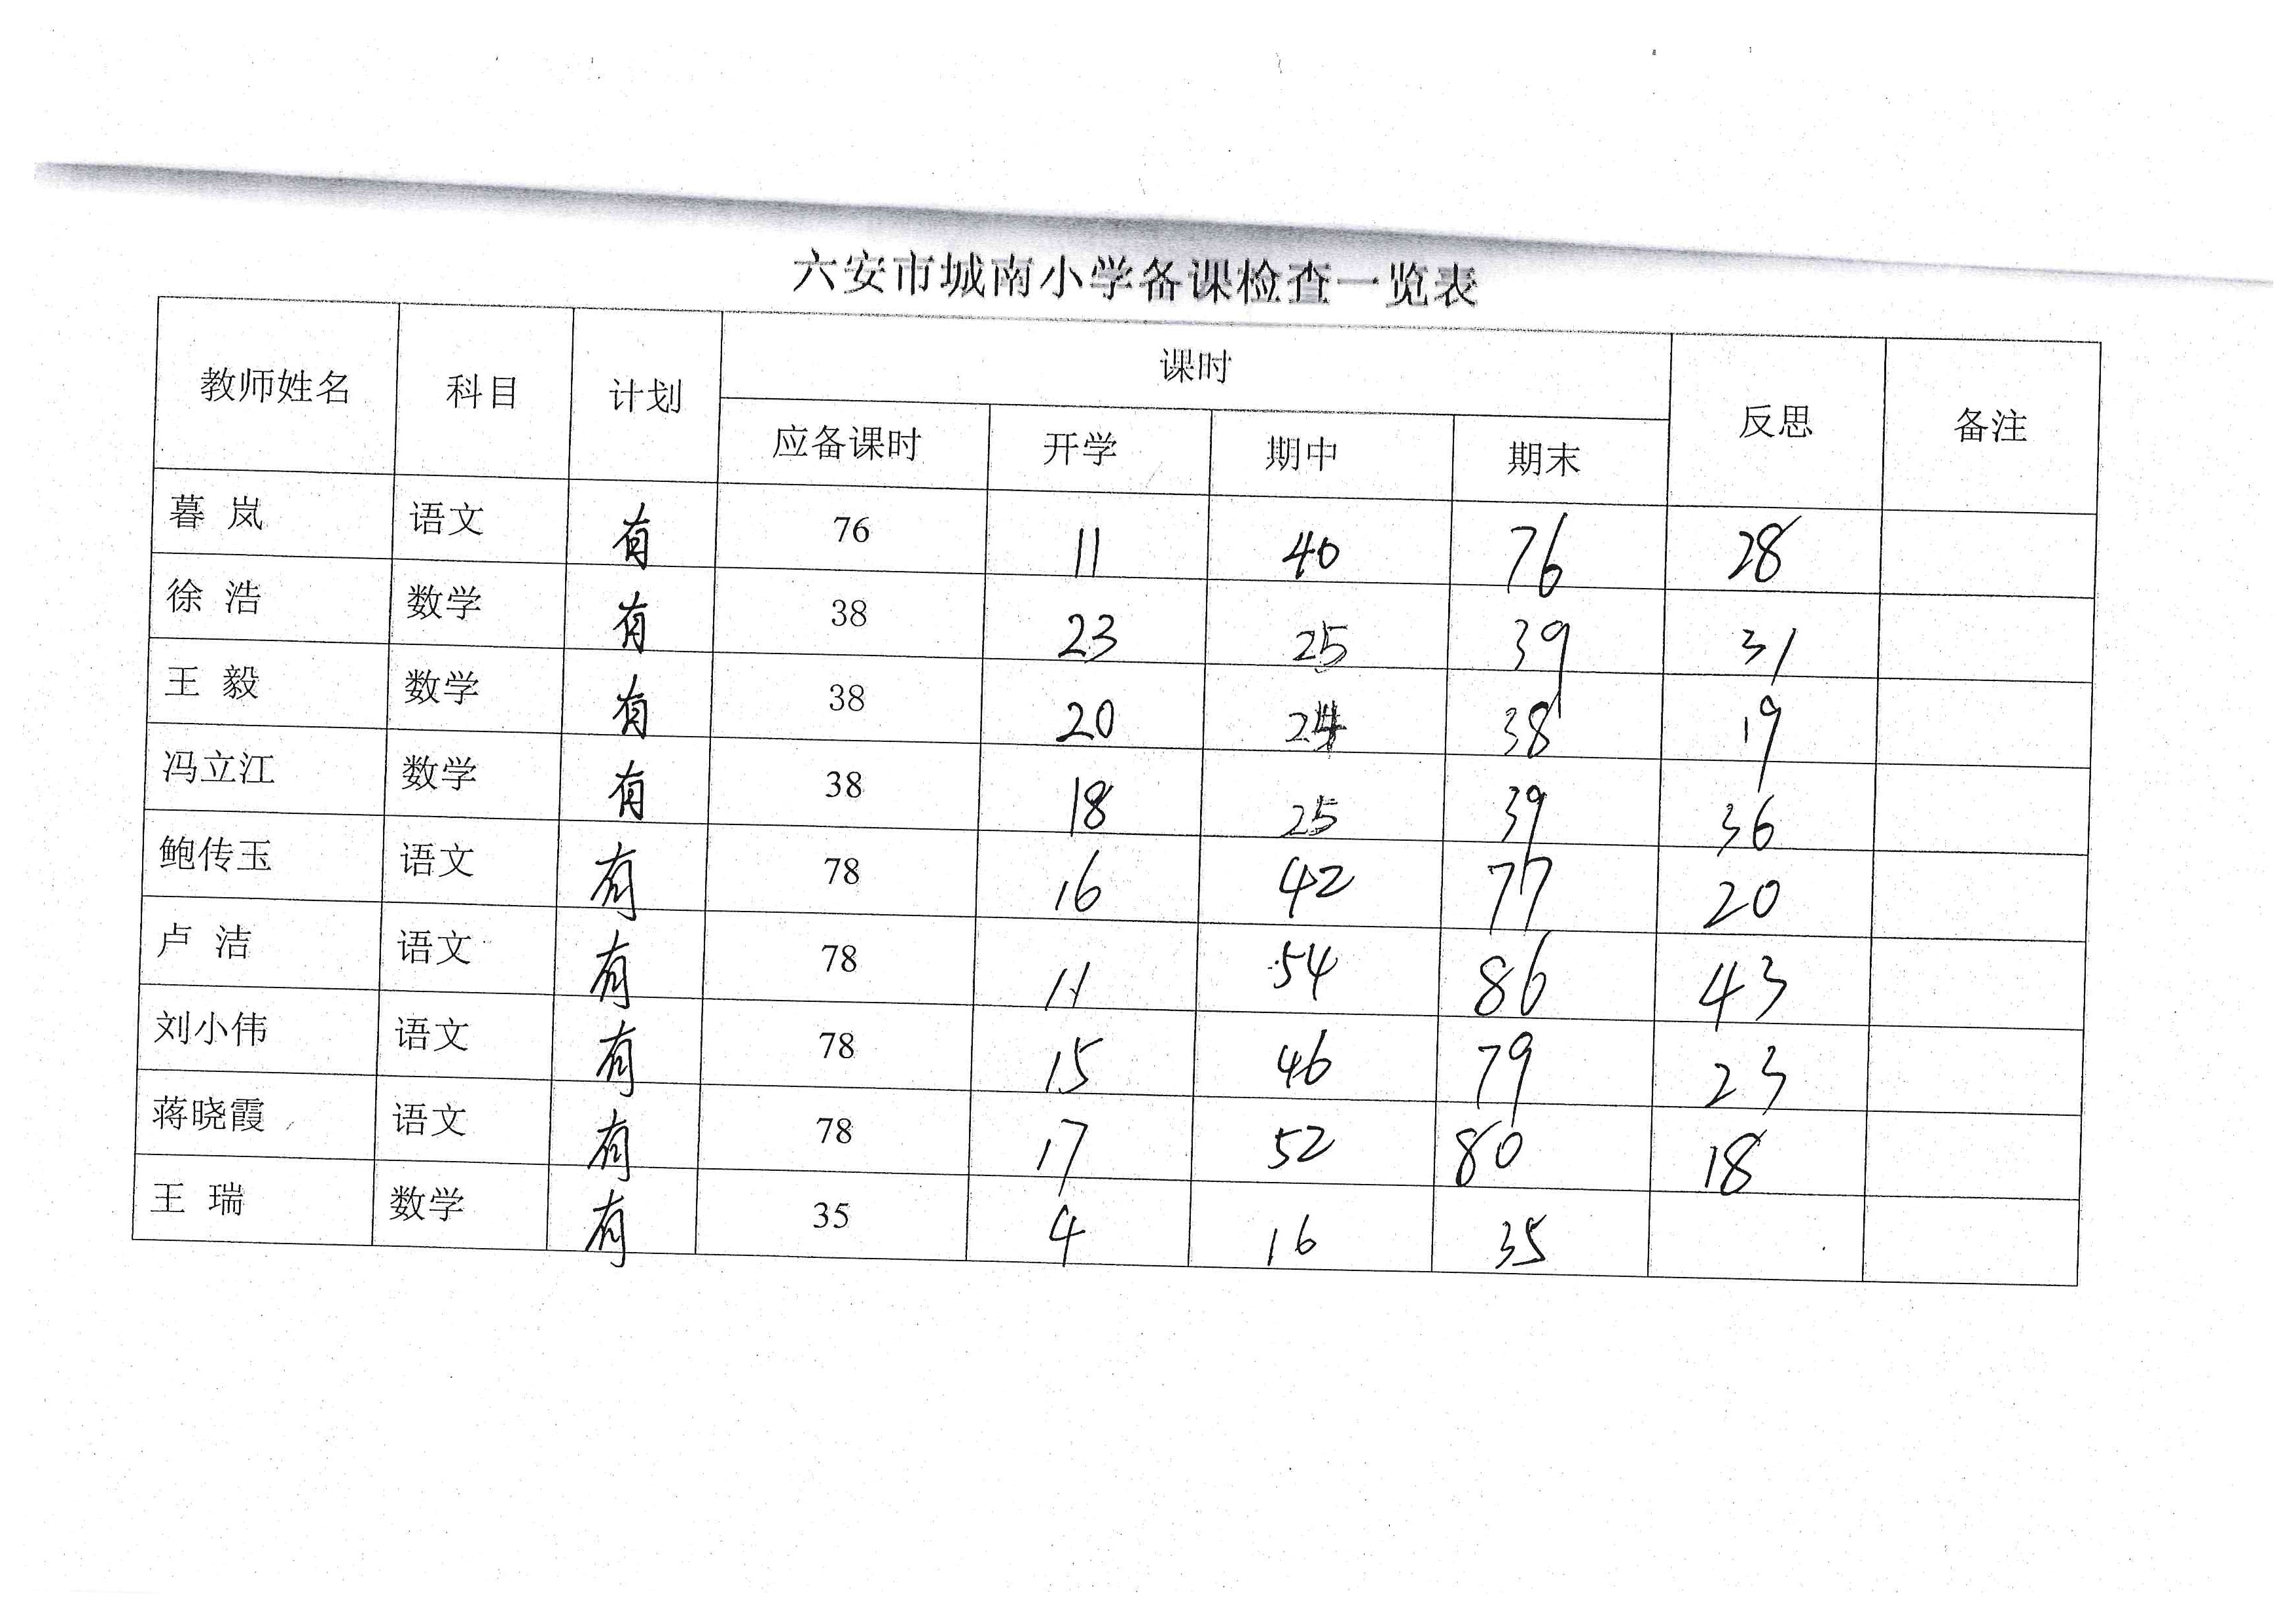 六安市城南小学备课检查一览表
教师姓名 科目 计划 课时 反思 备注
应备课时 开学 期中 期末
暮 岚 语文 有 76 11 40 76 28
徐 浩 数学 有 38 23 25 39 31
王 毅 数学 有 38 20 24 38 19
冯立江 数学 有 38 18 25 39 36
鲍传玉 语文 有 78 16 42 77 20
卢 洁 语文 有 78 11 54 86 43
刘小伟 语文 有 78 15 46 79 23
蒋晓霞 语文 有 78 17 52 80 18
王 瑞 数学 有 35 4 16 35